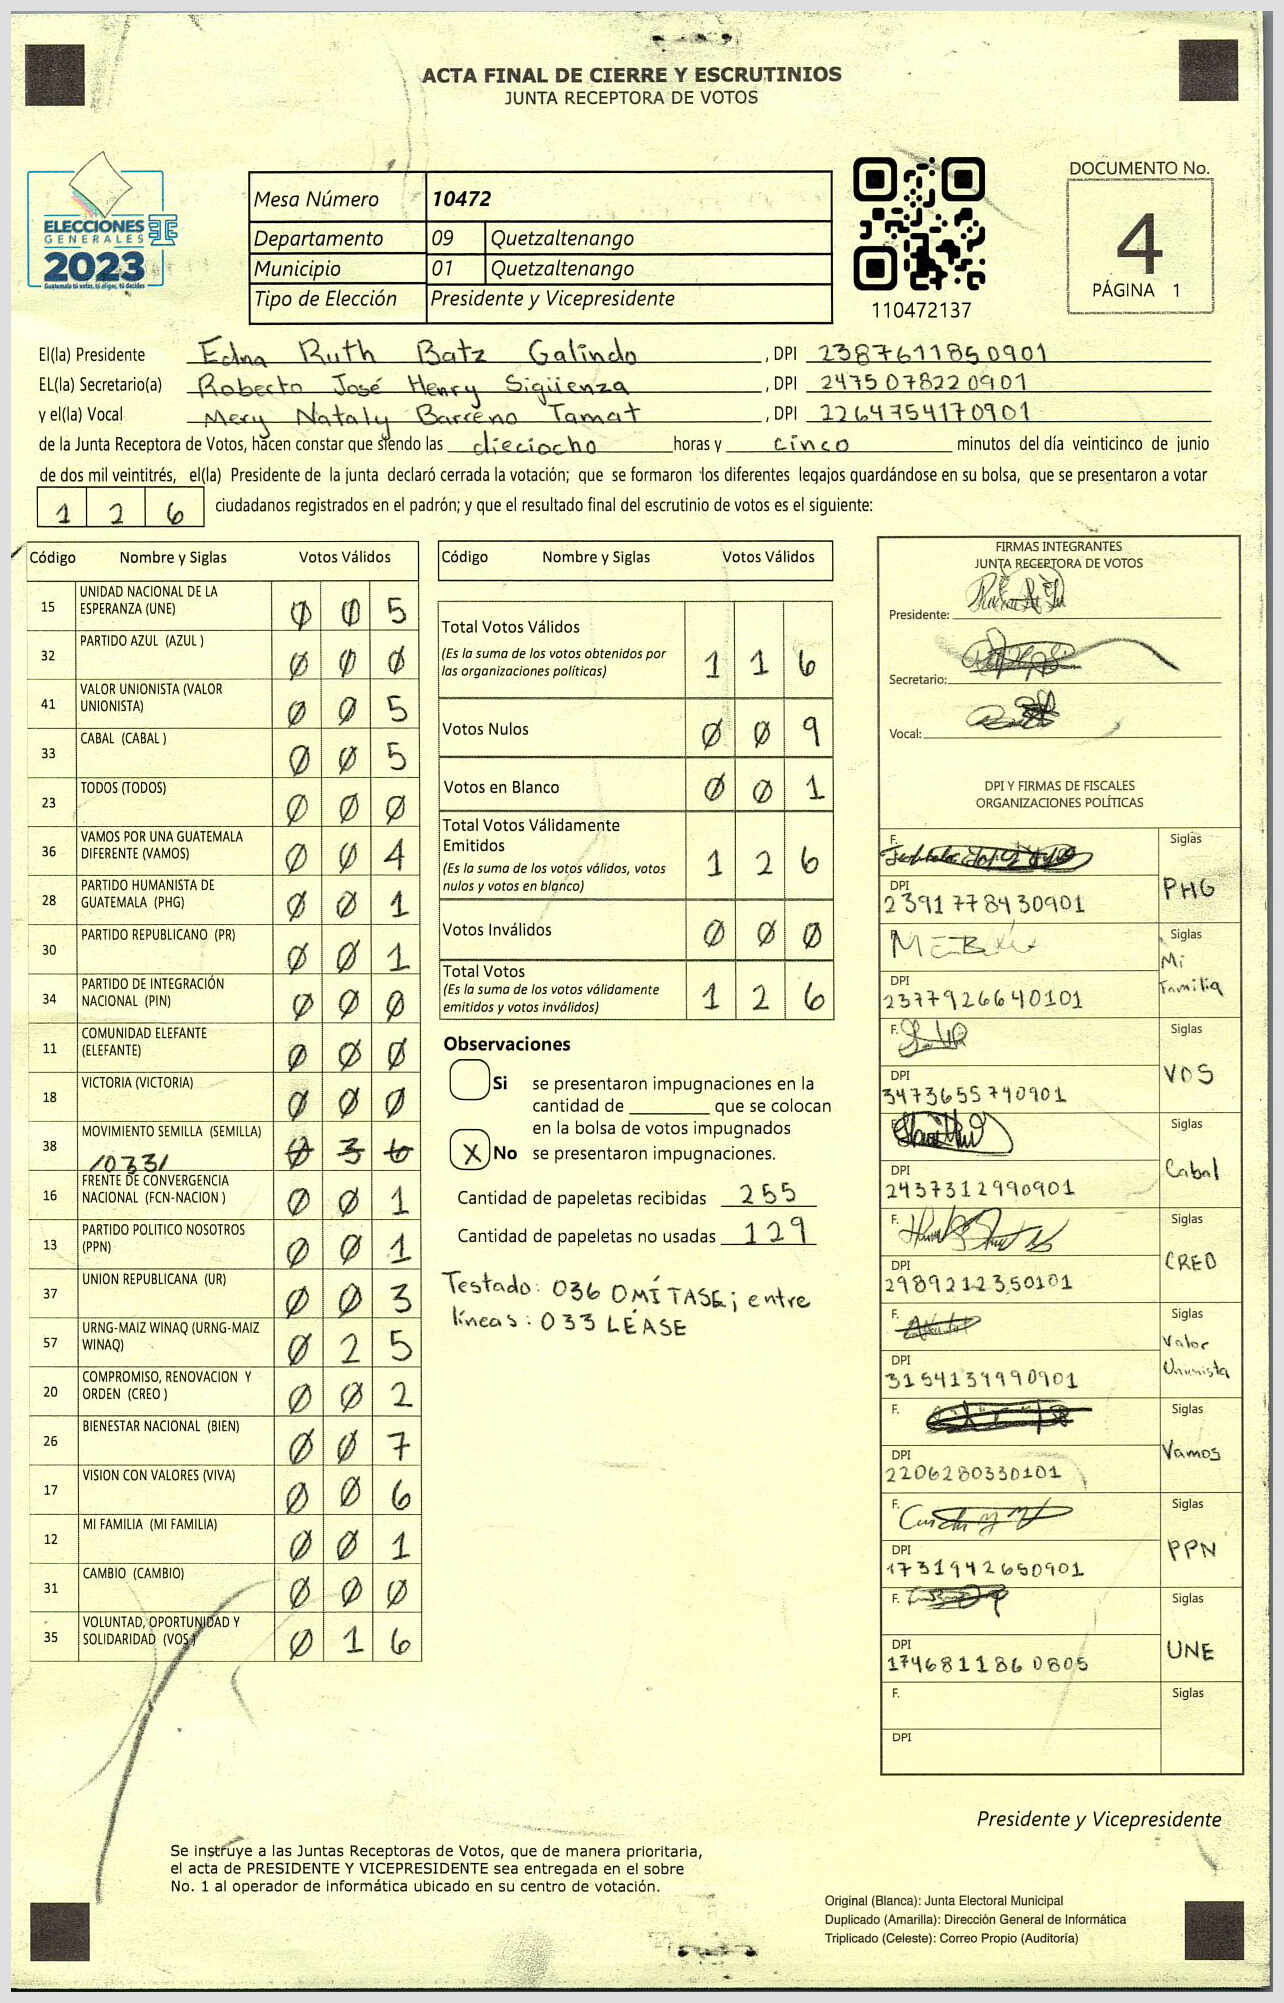 ACTA FINAL DE CIERRE Y ESCRUTINIOS
JUNTA RECEPTORA DE VOTOS
ELECCIONES
GENERALES
2023
Guatemala tú votas, tú eliges, tú decides
Mesa Número 10472
Departamento 09 Quetzaltenango
Municipio 01 Quetzaltenango
Tipo de Elección Presidente y Vicepresidente
110472137
DOCUMENTO No.
4
PÁGINA 1
El(la) Presidente Edna Ruth Batz Galindo, DPI 2387611850901
EL(la) Secretario(a) Roberto José Henry Sigüenza, DPI 2475078220901
y el(la) Vocal Mery Nataly Barreno Tamat, DPI 2264754170901
de la Junta Receptora de Votos, hacen constar que siendo las dieciocho horas y cinco minutos del día veinticinco de junio
de dos mil veintitrés, el(la) Presidente de la junta declaró cerrada la votación; que se formaron los diferentes legajos guardándose en su bolsa, que se presentaron a votar
1 2 6 ciudadanos registrados en el padrón; y que el resultado final del escrutinio de votos es el siguiente:
Código Nombre y Siglas Votos Válidos
15 UNIDAD NACIONAL DE LA ESPERANZA (UNE) 0 0 5
32 PARTIDO AZUL (AZUL ) 0 0 0
41 VALOR UNIONISTA (VALOR UNIONISTA) 0 0 5
33 CABAL (CABAL ) 0 0 5
23 TODOS (TODOS) 0 0 0
36 VAMOS POR UNA GUATEMALA DIFERENTE (VAMOS) 0 0 4
28 PARTIDO HUMANISTA DE GUATEMALA (PHG) 0 0 1
30 PARTIDO REPUBLICANO (PR) 0 0 1
34 PARTIDO DE INTEGRACIÓN NACIONAL (PIN) 0 0 0
11 COMUNIDAD ELEFANTE (ELEFANTE) 0 0 0
18 VICTORIA (VICTORIA) 0 0 0
38 MOVIMIENTO SEMILLA (SEMILLA) 0 3 6
/033/
16 FRENTE DE CONVERGENCIA NACIONAL (FCN-NACION ) 0 0 1
13 PARTIDO POLITICO NOSOTROS (PPN) 0 0 1
37 UNION REPUBLICANA (UR) 0 0 3
57 URNG-MAIZ WINAQ (URNG-MAIZ WINAQ) 0 2 5
20 COMPROMISO, RENOVACION Y ORDEN (CREO ) 0 0 2
26 BIENESTAR NACIONAL (BIEN) 0 0 7
17 VISION CON VALORES (VIVA) 0 0 6
12 MI FAMILIA (MI FAMILIA) 0 0 1
31 CAMBIO (CAMBIO) 0 0 0
35 VOLUNTAD, OPORTUNIDAD Y SOLIDARIDAD (VOS) 0 1 6
Código Nombre y Siglas Votos Válidos
Total Votos Válidos 1 1 6
(Es la suma de los votos obtenidos por
las organizaciones políticas)
Votos Nulos 0 0 9
Votos en Blanco 0 0 1
Total Votos Válidamente
Emitidos 1 2 6
(Es la suma de los votos válidos, votos
nulos y votos en blanco)
Votos Inválidos 0 0 0
Total Votos 1 2 6
(Es la suma de los votos válidamente
emitidos y votos inválidos)
Observaciones
Si se presentaron impugnaciones en la
cantidad de ________ que se colocan
en la bolsa de votos impugnados
X No se presentaron impugnaciones.
Cantidad de papeletas recibidas 255
Cantidad de papeletas no usadas 129
Testado: 036 OMÍTASE; entre
líneas: 033 LÉASE
FIRMAS INTEGRANTES
JUNTA RECEPTORA DE VOTOS
Presidente:
Secretario:
Vocal:
DPI Y FIRMAS DE FISCALES
ORGANIZACIONES POLÍTICAS
F. Siglas
DPI PHG
2391778430901
F. Siglas
DPI Mi Familia
2377926640101
F. Siglas
DPI VOS
3473655740901
F. Siglas
DPI Cabal
2437312990901
F. Siglas
DPI CREO
2989212350101
F. Siglas
DPI Valor Unionista
3154139990901
F. Siglas
DPI Vamos
2206280330101
F. Siglas
DPI PPN
1731942650901
F. Siglas
DPI UNE
1746811860805
F. Siglas
DPI
Presidente y Vicepresidente
Se instruye a las Juntas Receptoras de Votos, que de manera prioritaria,
el acta de PRESIDENTE Y VICEPRESIDENTE sea entregada en el sobre
No. 1 al operador de informática ubicado en su centro de votación.
Original (Blanca): Junta Electoral Municipal
Duplicado (Amarilla): Dirección General de Informática
Triplicado (Celeste): Correo Propio (Auditoría)